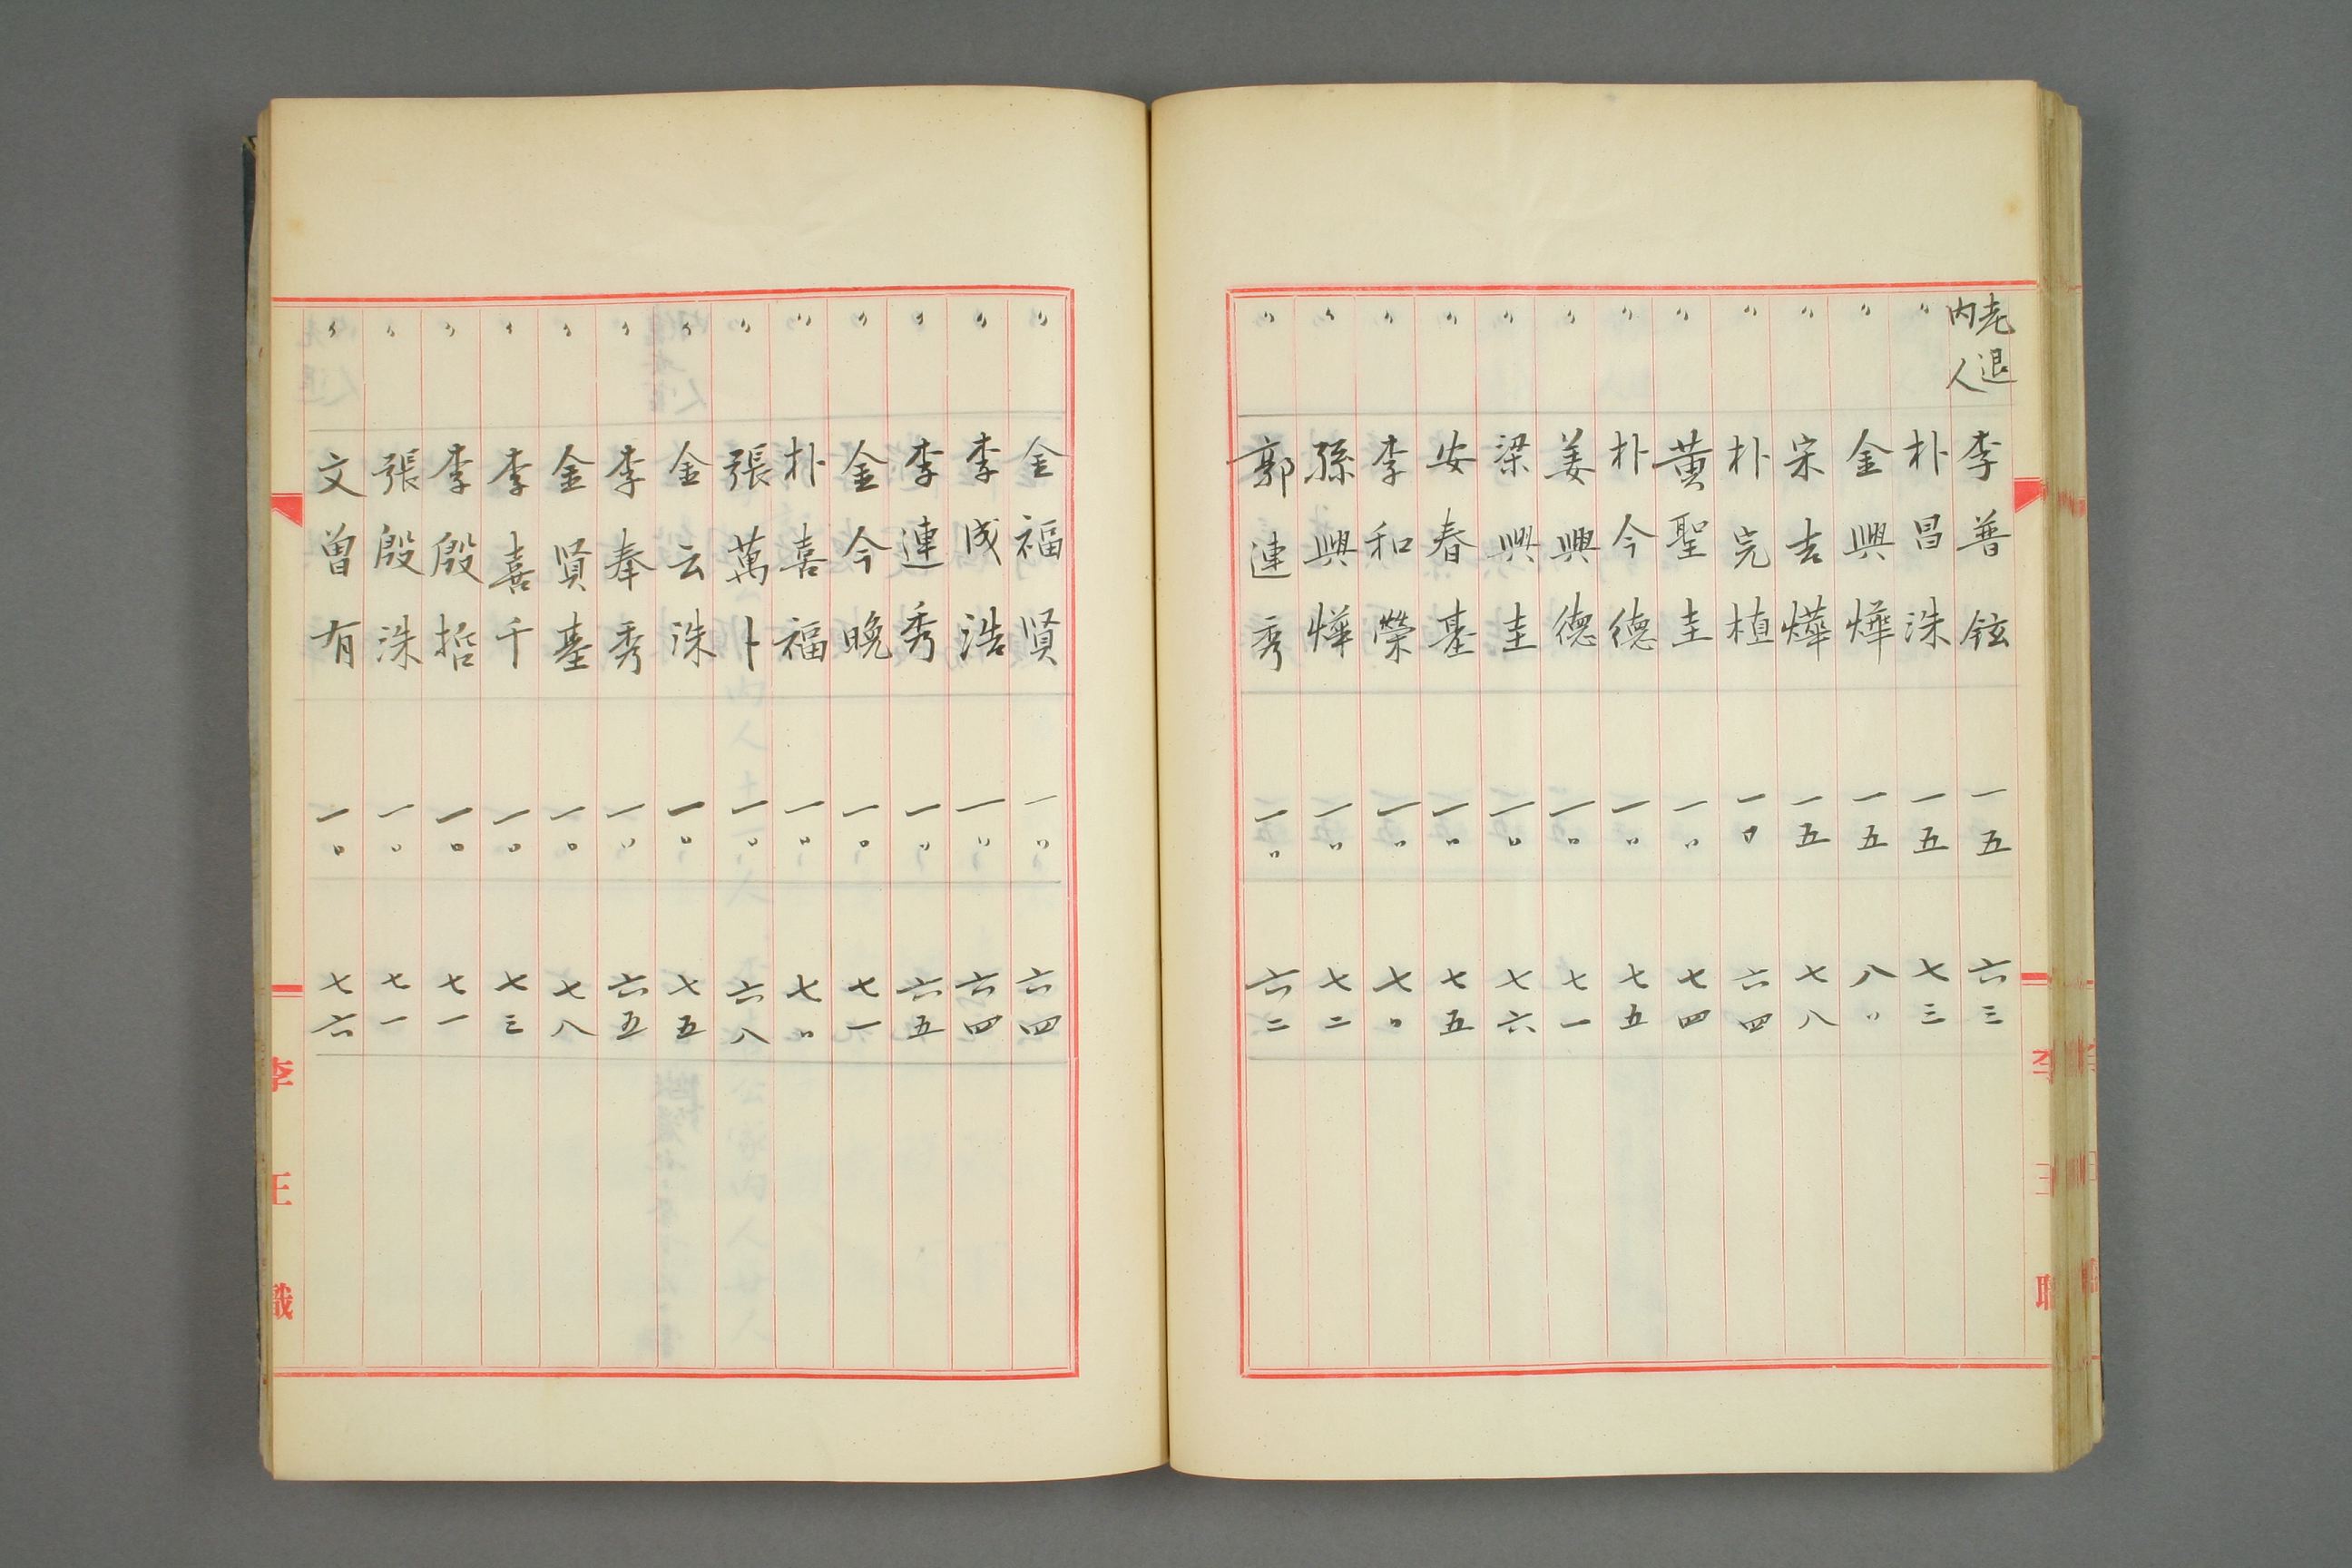 老退
内人
李普鉉 一五 六三
〃 朴昌洙 一五 七三
〃 金興燁 一五 八〇
〃 宋吉燁 一五 七八
〃 朴完植 一〇 六四
〃 黄聖圭 一〇 七四
〃 朴今德 一〇 七五
〃 姜興德 一〇 七一
〃 梁興圭 一〇 七六
〃 安春基 一〇 七五
〃 李和榮 一〇 七〇
〃 孫興燁 一〇 七二
〃 郭連秀 一〇 六二
李王職
〃 金福賢 一〇 六四
〃 李成浩 一〇 六四
〃 李連秀 一〇 六五
〃 金今晩 一〇 七一
〃 朴喜福 一〇 七〇
〃 張萬卜 一〇 六八
〃 金云洙 一〇 七五
〃 李奉秀 一〇 六五
〃 金賢基 一〇 七八
〃 李喜千 一〇 七三
〃 李殷哲 一〇 七一
〃 張殷洙 一〇 七一
〃 文曽有 一〇 七六
李王職